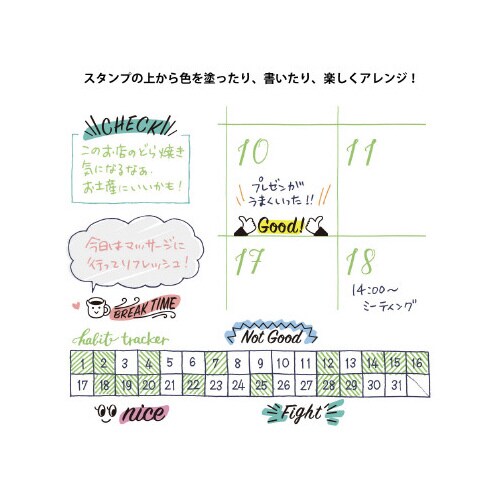 スタンプの上から色を塗ったり、書いたり、楽しくアレンジ！
CHECK
このお店のどら焼き
気になるなぁ.
お土産にいいかも!
10
11
プレゼンが
うまくいった!!
Good!
今日はマッサージに
行ってリフレッシュ!
BREAK TIME
17
18
14:00～
ミーティング
habit tracker
Not Good
1 2 3 4 5 6 7 8 9 10 11 12 13 14 15 16
17 18 19 20 21 22 23 24 25 26 27 28 29 30 31
nice
Fight